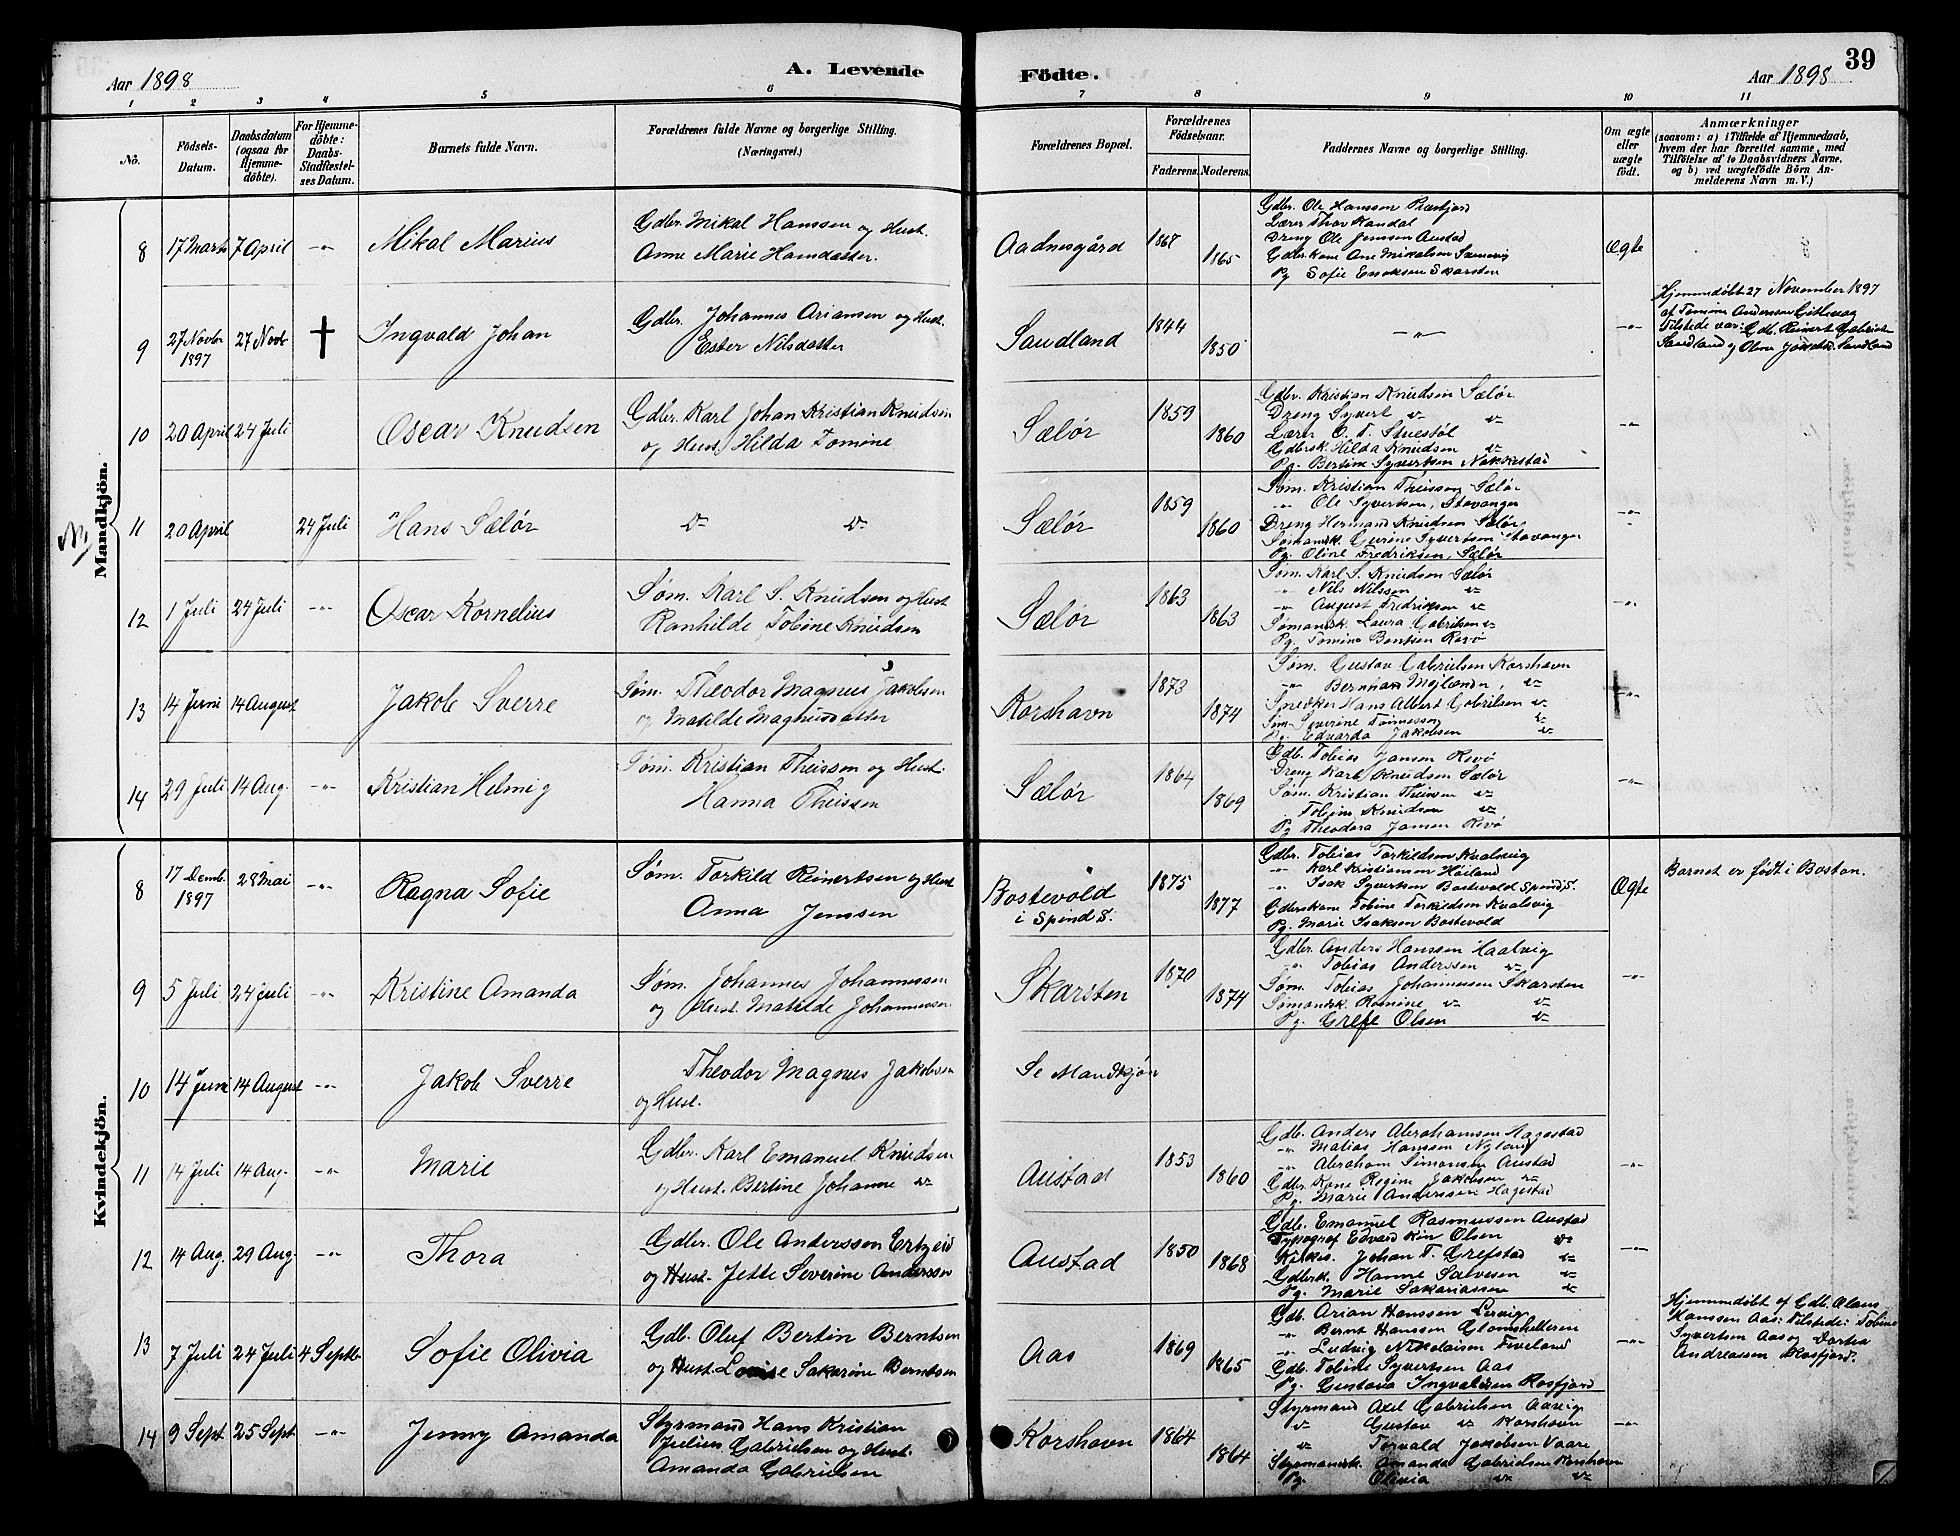 39
Aar 1898
A. Levende Födte.
Aar 1898
1 2 3 4 5 6 7 8 9 10 11
No.
Födsels-Datum.
Daabsdatum (ogsaa for Hjemme-döbte).
For Hjemme-döbte: Daabs-Stadfæstel-ses Datum.
Barnets fulde Navn.
Forældrenes fulde Navne og borgerlige Stilling.
(Næringsvei.)
Forældrenes Bopæl.
Forældrenes Födselsaar.
Faderens. Moderens.
Faddernes Navne og borgerlige Stilling.
Om ægte eller uægte födt.
Anmærkninger
(saasom: a) i Tilfælde af Hjemmedaab,
hvem der har forrettet samme, med
Tilföielse af to Daabsvidners Navne,
og b) ved uægtefödte Börn An-
melderens Navn m. V.)
Mandkjön.
8 17 Marts 7 April -"- Mikal Marius
Gdbr. Mikal Hanssen og Hust.
Anne Marie Hansdatter.
Aadnesgård 1868 1865
Gdbr. Ole Hanssen Rosfjord
Lærer Thor Kandal
Dreng Ole Jenssen Austad
Gdbr.kone Ane Mikalsen
Pg Sofie Enoksen Skarsten
Ægte
9 27 Novbr 1897 27 Novbr † Ingvald Johan
Gdbr. Johannes Ariansen og Hust.
Ester Nilsdatter
Sandland 1844 1850
-"-
-"-
Hjemmedöbt 27 November 1897
af Tomine Anderssen
Tilstede var: Gdb. Reinert Gabrielsen
Sandland og Oline Sandland
10 20 April 24 Juli Oscar Knudsen
Gdbr. Karl Johan Kristian Knudsen
og Hust. Hilda Tomine
Sælør 1859 1860
Gdbr. Kristian Knudsen Sælør
Dreng Syvert
Lærer O. T. Stuestøl
Gdbrsk. Hilda Knudsen
Pg. Bertine Syvertsen
-"-
11 20 April 24 Juli Hans Sælør
Sælør 1859 1860
Søm. Kristian Theissen Sælør
-"- Ole Syvertsen, Stavanger
Dreng Hermand Knudsen Sælør,
Sømansk. Gurine Syvertsen Stavanger
Pg. Oline Fredriksen, Sælør
-"-
12 1 Juli 24 Juli -"- Oscar Kornelius
Søm. Karl S. Knudsen og Hust
Ranhilde Tobine Knudsen
Sælør 1863 1863
Søm. Karl S. Knudsen Sælør
-"- Nils Nilssen
-"- August Fredriksen
Sømansk. Laura Gabrielsen
Pg. Tomine Berntsen Revø
-"-
13 14 Juni 14 August Jakob Sverre
Søm. Theodor Magnus Jakobsen
og Matilde Magnusdatter
Korshavn 1873 1874
Søm. Gustav Gabrielsen Korshavn
-"- Bernhard Mejlænder,
Snedker Hans Albert Gabrielsen
Søm. Severine Tønnessen
Pg. Edvarda Jakobsen
-"-
14 29 Juli 14 Aug. -"- Kristian Helmig
Søm. Kristian Theissen og Hust.
Hanna Theissen
Sælør 1864 1869
Gdb. Tobias Jansen Revø
Dreng Karl Knudsen Sælør
Søm. Kristian Theissen
Tobine Knudsen
Pg Theodora Jansen Revø
-"-
Kvindekjön.
8 17 Decmb. 1897 28 Mai -"- Ragna Sofie
Søm. Torkild Reinertsen og Hust
Anna Jenssen
Bostevold
i Spind S.
1875 1877
Gdbr. Tobias Torkildsen Kvalsvig
-"- Karl Kristiansen Høiland
-"- Isak Syvertsen Bostevold Spind S.
Gdbrskone Tobine Torkildsen Kvalsvig
Pg. Marie Isaksen Bostevold
Ægte
Barnet er født i Boston.
9 5 Juli 24 Juli -"- Kristine Amanda
Søm. Johannes Johannessen
og Hust. Matilde Johannessen
Skarsten 1870 1874
Gdbr. Anders Hanssen Haatvig
-"- Tobias Anderssen
Søm. Tobias Johannessen Skarsten
Sømandsk. Romine
Pg. Grete Olsen
-"-
10 14 Juni 14 August -"- Jakob Sverre
Theodor Magnus Jakobsen
og Hust.
Se Mandkjøn
11 14 Juli 14 Aug. -"- Marie
Gdbr. Karl Emanuel Knudsen
og Hust. Bertine Johanne
Austad 1853 1860
Gdb. Anders Abrahamsen Hagestad
-"- Matias Hanssen
-"- Abraham Simonsen Austad
Gdbr. Kone Regine Jakobsen
Pg. Marie Anderssen Hagestad
-"-
12 14 Aug. 29 Aug. -"- Thora
Gdbr. Ole Anderssen Ertzeid
og Hust. Jette Severine Anderssen
Austad 1850 1868
Gdb. Emanuel Rasmussen Austad
Typograf Edvard Olsen
Johan T. Grefstad
Gdbrsk. Hanne Salvesen
Pg. Marie Sakariassen
-"-
13 7 Juli 24 Juli 4 Septbr Sofie Olivia
Gdb. Oluf Bertin Berntsen
og Hust. Lovise Sakarine Berntsen
Aas 1869 1865
Gdb. Arian Hanssen Lervig
-"- Bernt Hanssen
-"- Ludvig Nikolaisen Fiveland
Gdb. Tobine Syvertsen Aas
Pg. Gustava Ingvaldsen Rosfjord
-"-
Hjemmedöbt af Gdb. Olaus
Hanssen Aas: Tilstede: Tobine
Syvertsen Aas og Dortea
Andreassen Rosfjord.
14 9 Sept 25 Sept. -"- Jenny Amanda
Styrmand Hans Kristian
Julius Gabrielsen og Hust.
Amanda Gabrielsen
Korshavn 1864 1864
Styrmand Axel Gabrielsen Aavig
Gustav Korshavn
Torvald Jakobsen Vaare
Styrmansk. Amanda Gabrielsen Korshavn
Pg. Olivia
-"-